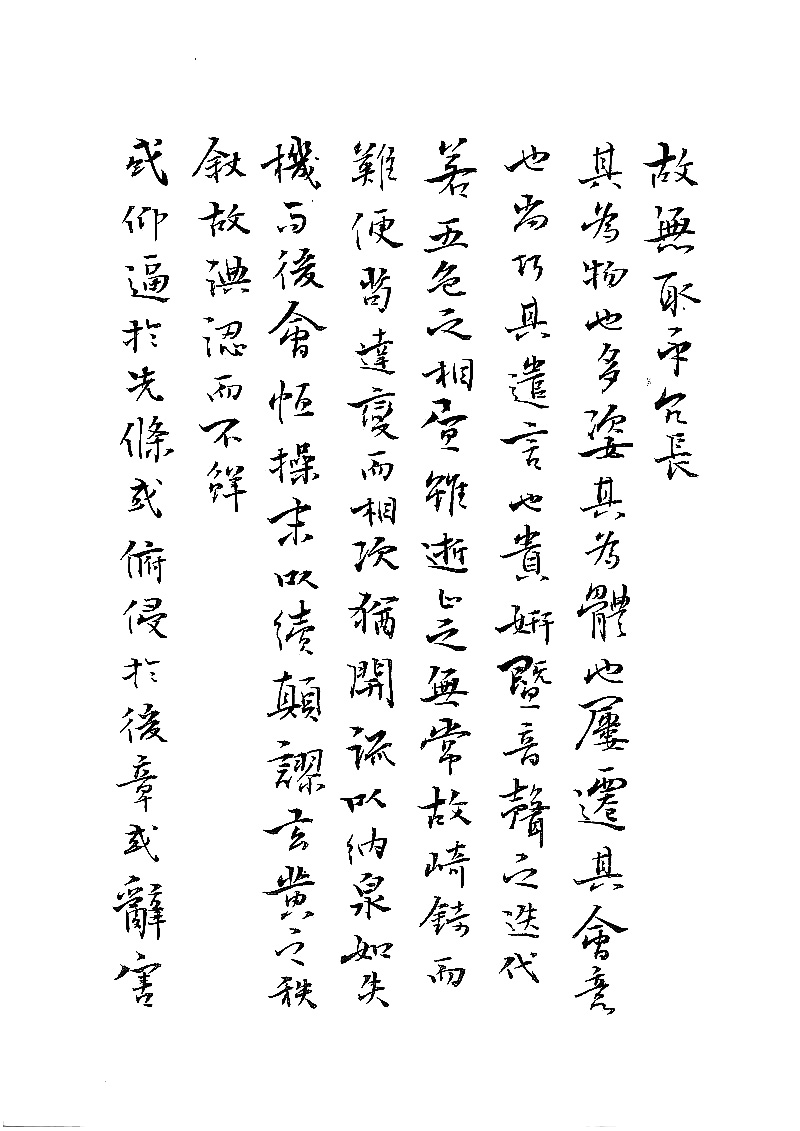 故無取乎冗長
其為物也多姿其為體也屢遷其會意
也尚巧其遣言也貴妍暨音聲之迭代
若五色之相宣雖逝止之無常故崎錡而
難便苟達變而相次猶開流以納泉如失
機而後會恆操末以續顛謬玄黃之秩
敘故淟涊而不鮮
或仰逼於先條或俯侵於後章或辭害